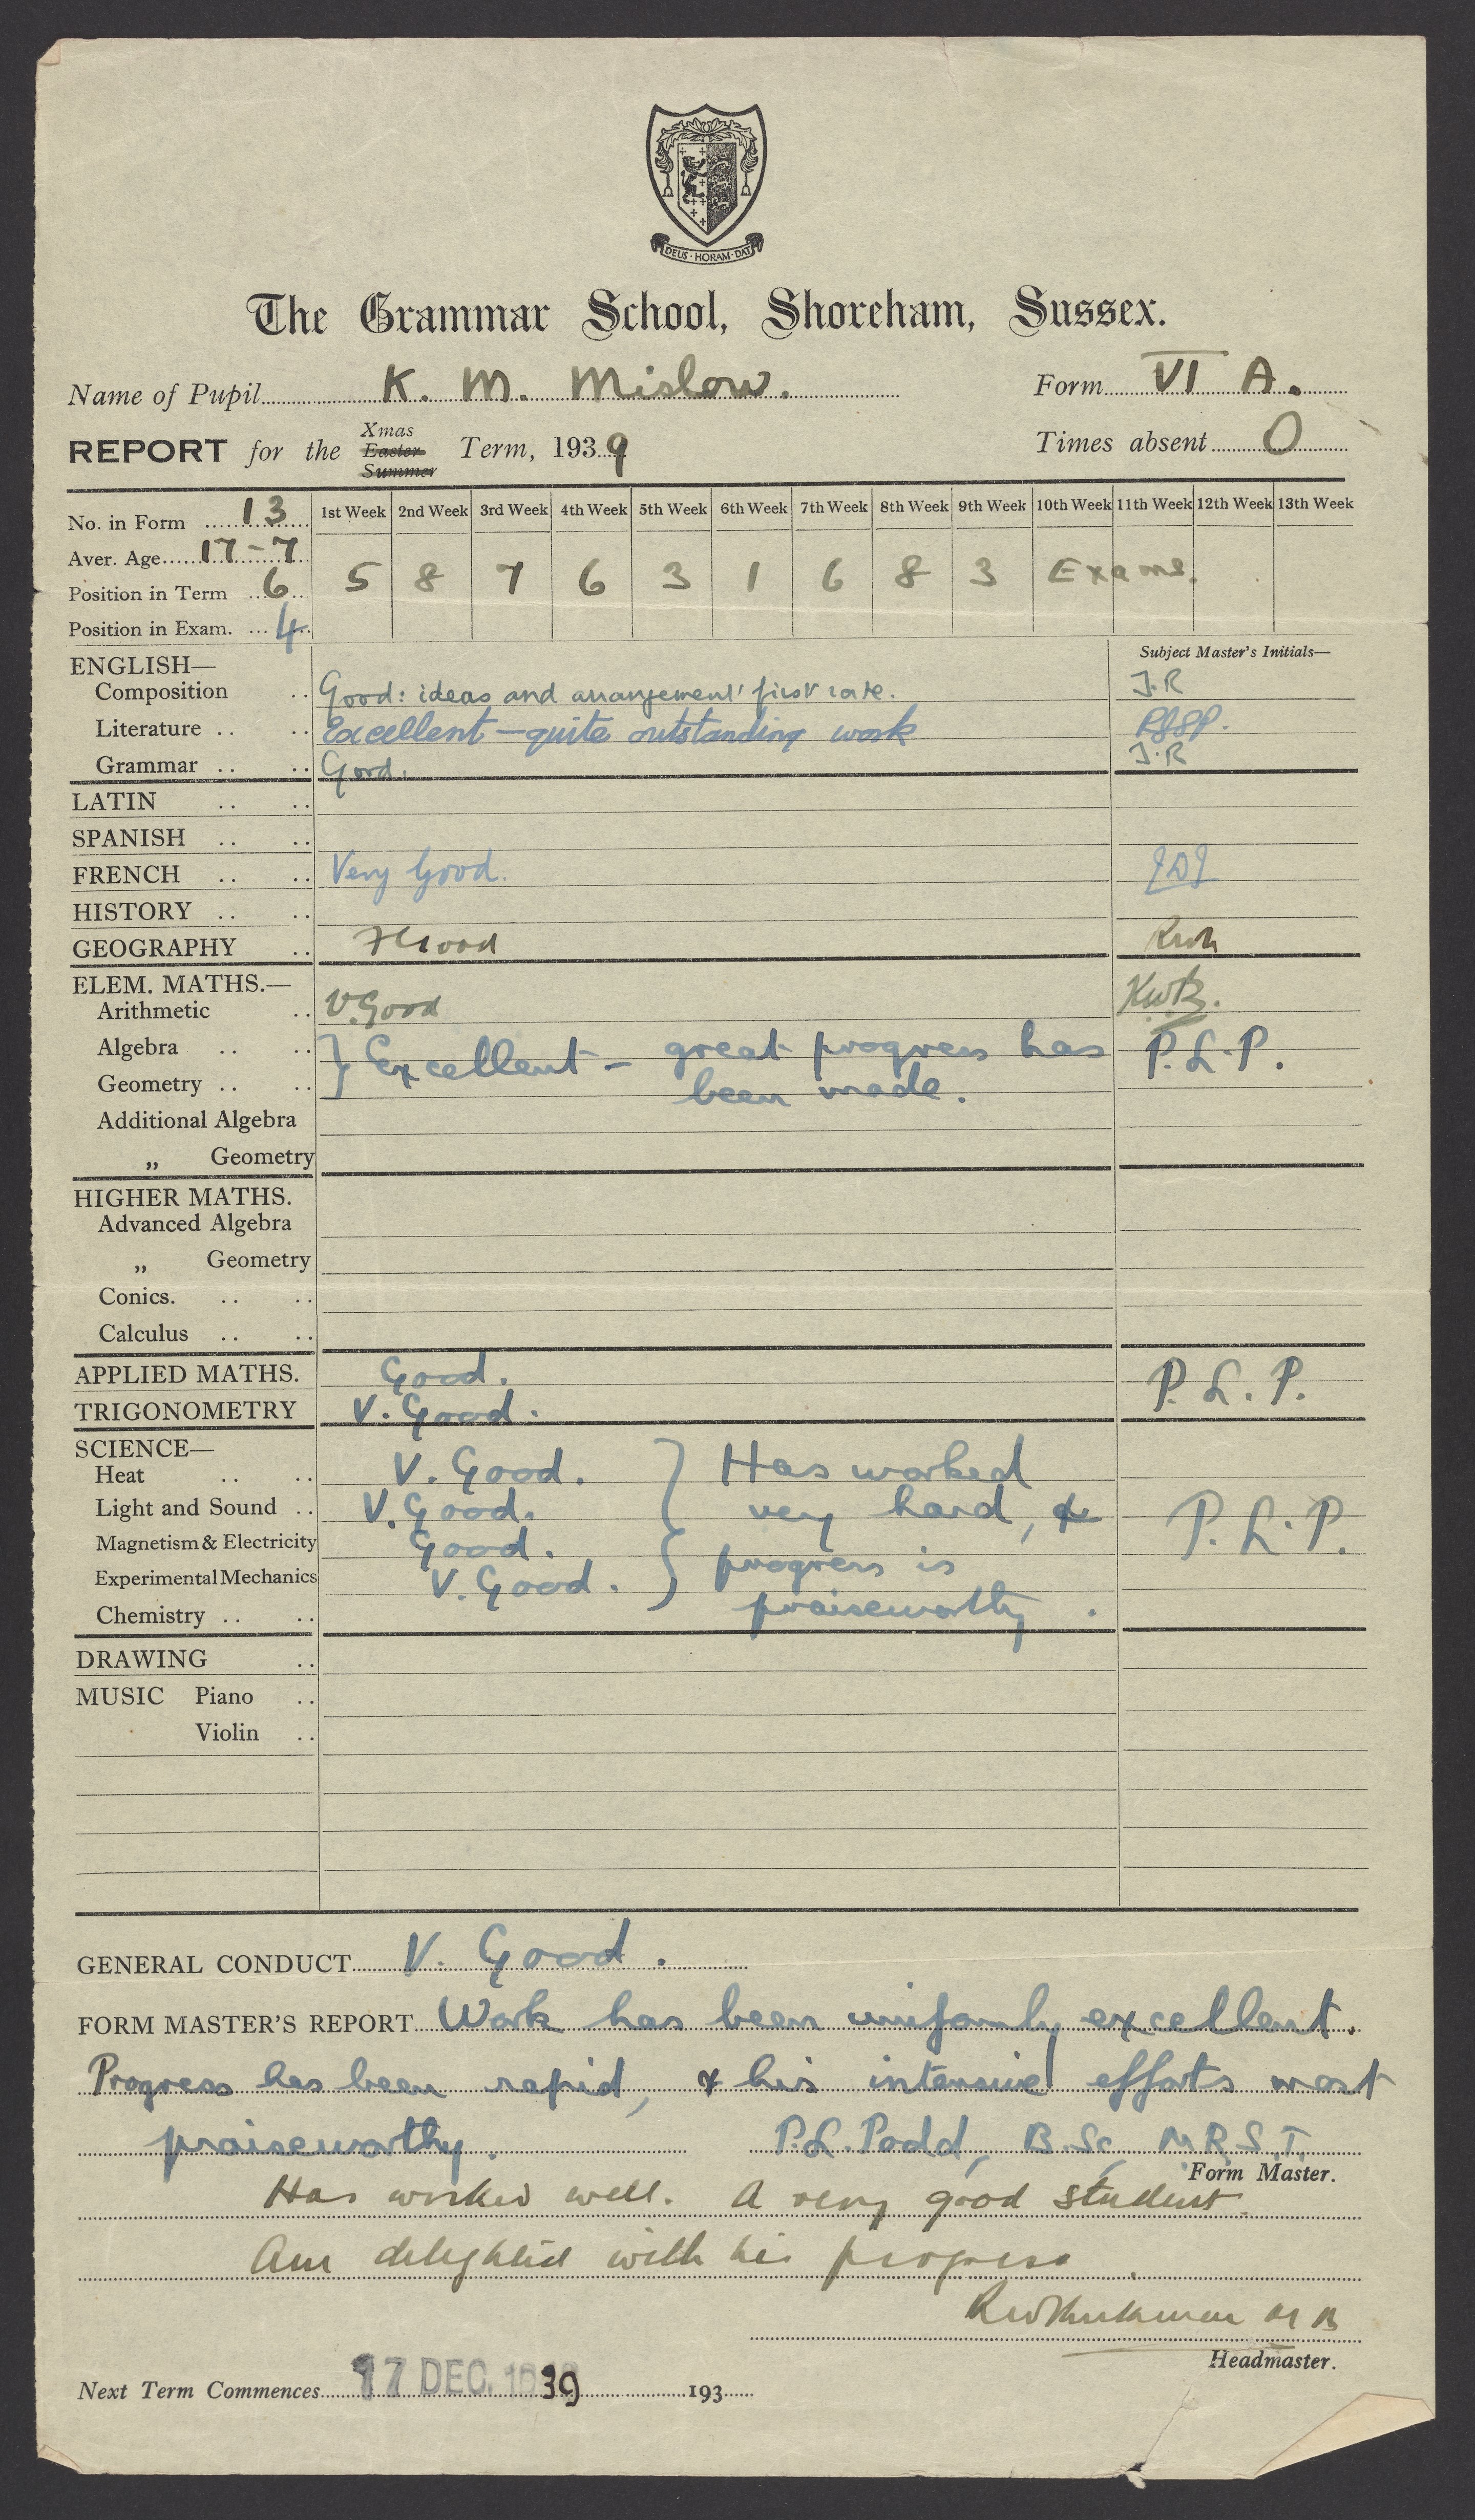 DEUS · HORAM · DAT
The Grammar School, Shoreham, Sussex.
Name of Pupil K. M. Mislow. Form VI A.
REPORT for the Xmas Easter Summer Term, 1939 Times absent 0
No. in Form 13 1st Week 2nd Week 3rd Week 4th Week 5th Week 6th Week 7th Week 8th Week 9th Week 10th Week 11th Week 12th Week 13th Week
Aver. Age 17-7
Position in Term 6 5 8 7 6 3 1 6 8 3 Exams.
Position in Exam. 4
ENGLISH— Subject Master's Initials—
Composition Good: ideas and arrangement first rate. J.R
Literature Excellent - quite outstanding work
Grammar Good. J.R
LATIN
SPANISH
FRENCH Very Good.
HISTORY
GEOGRAPHY Good
ELEM. MATHS.—
Arithmetic V. Good
Algebra } Excellent - great progress has P.L.P.
Geometry been made.
Additional Algebra
„ Geometry
HIGHER MATHS.
Advanced Algebra
„ Geometry
Conics.
Calculus
APPLIED MATHS. Good. P.L.P.
TRIGONOMETRY V. Good.
SCIENCE—
Heat V. Good. } Has worked
Light and Sound V. Good. very hard, & P.L.P.
Magnetism & Electricity Good. progress is
Experimental Mechanics V. Good. praiseworthy.
Chemistry
DRAWING
MUSIC Piano
Violin
GENERAL CONDUCT V. Good.
FORM MASTER'S REPORT Work has been uniformly excellent.
Progress has been rapid, & his intensive efforts most
praiseworthy. P.L. Podd, B.Sc, M.R.S.T.
Form Master.
Has worked well. A very good student.
Am delighted with his progress.
Headmaster.
Next Term Commences 17 DEC. 1939 193